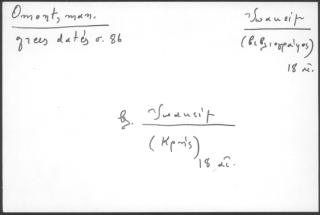 Omont, man.
grecs datés σ. 86
Ἰωασὶφ
(βιβλιογράφος)
18 αἰ.
βλ. Ἰωασὶφ
(Κρὴς)
18 αἰ.